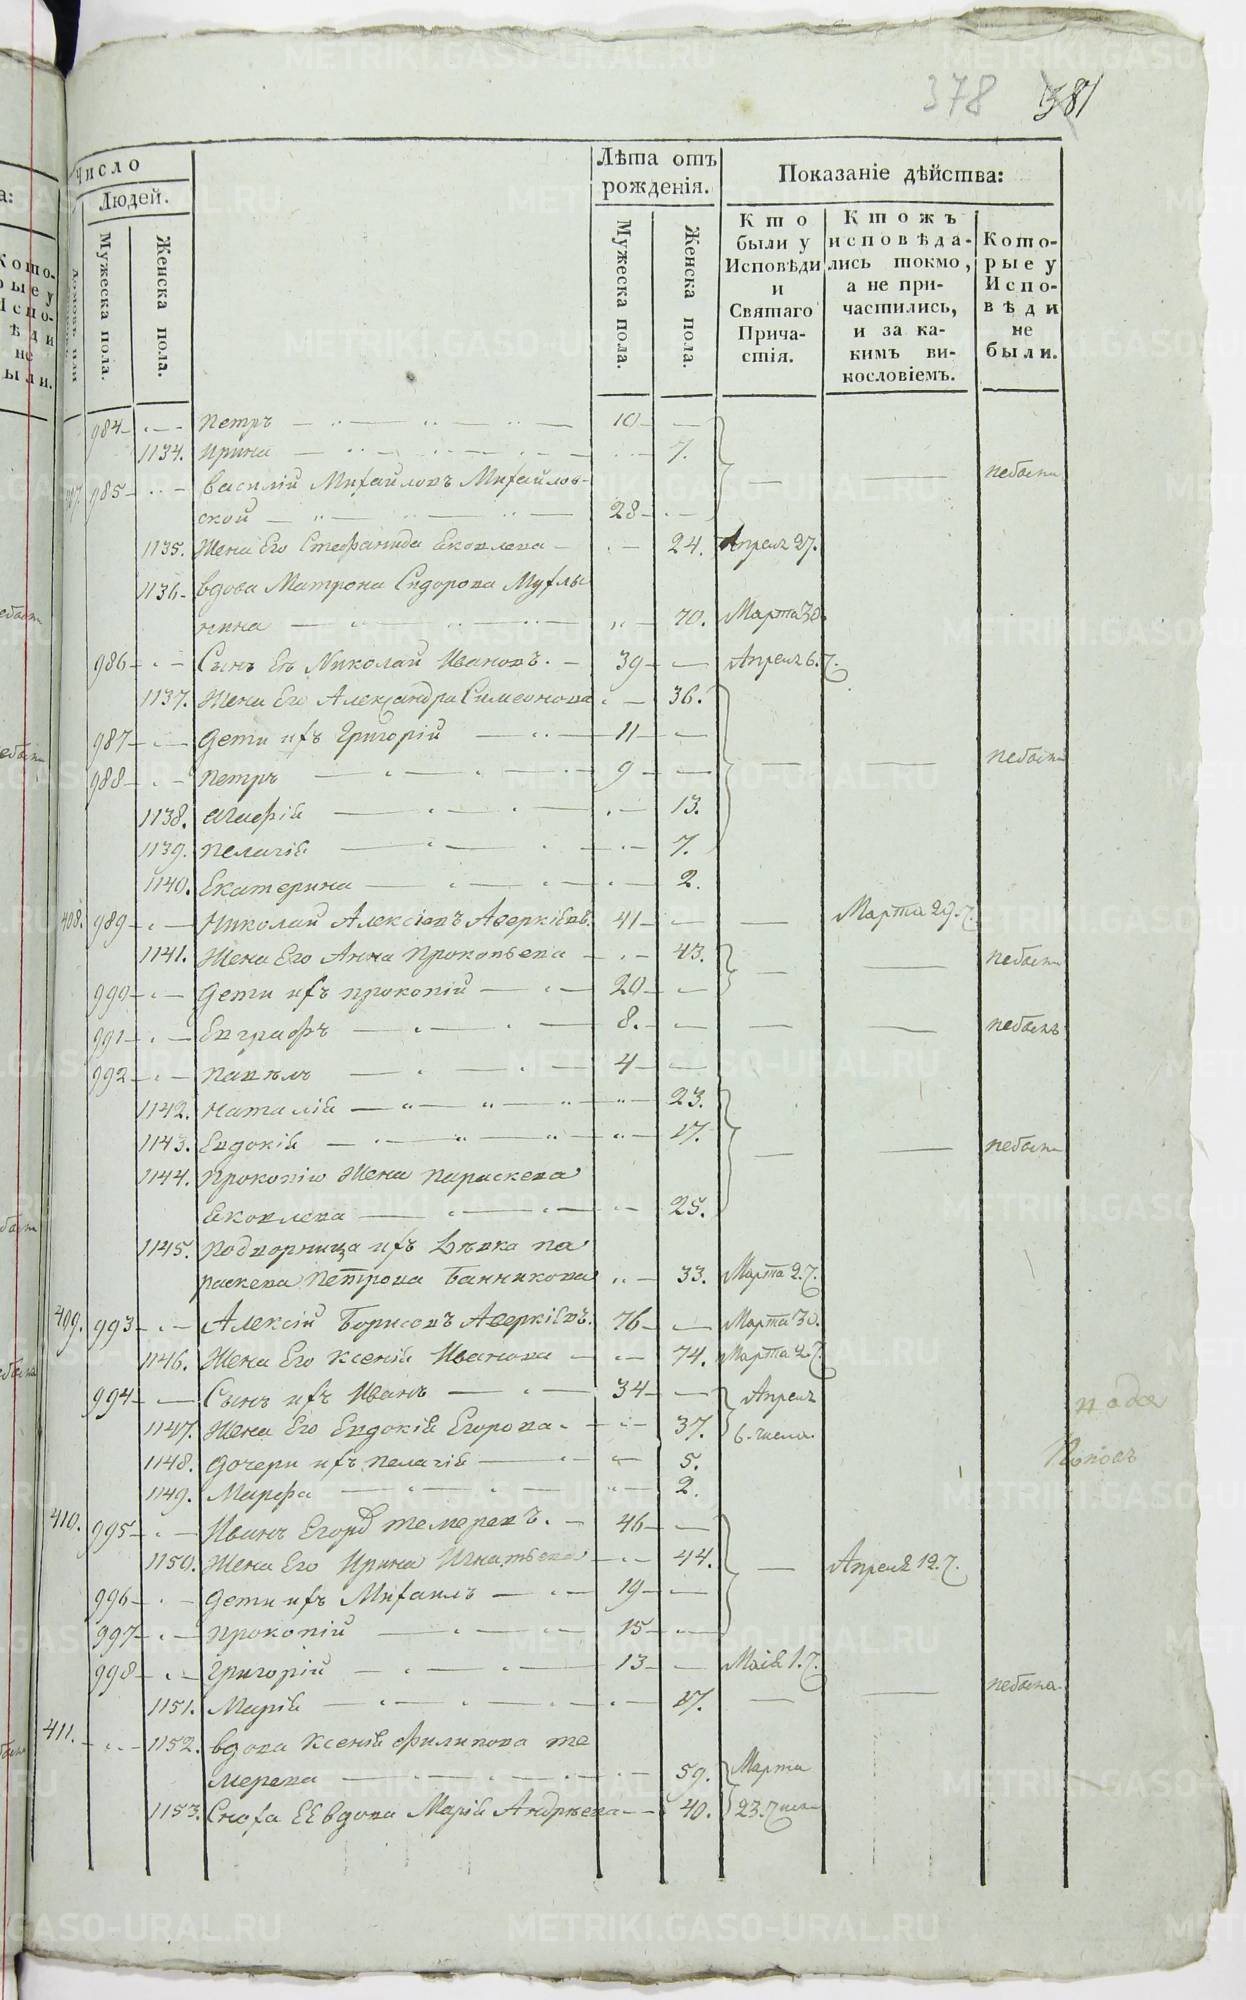 378 381
Число
Людей.
Мужеска пола.
Женска пола.
Лѣта отъ рожденія.
Мужеска пола.
Женска пола.
Показаніе дѣйства:
Кто были у Исповѣди и Святаго Причастія.
Ктожъ исповѣдались токмо, а не причастились, и за какимъ винословіемъ.
Которые у Исповѣди не были.
984 Петръ 10
1134. Ирина 7.
407. 985 Василій Михайловъ Михайлов- небыли
ской 28
1135. Жена Его Стефанида Яковлева 24. Апреля 27.
1136 вдова Матрона Сидорова Мухлы
нина 70. Марта 30.
986 Сынъ Ея Николай Ивановъ. 39 Апреля 6.
1137. Жена Его Александра Симеонова 36.
987 Дети ихъ Григорій 11
988 Петръ 9 небыли
1138. Агафія 13.
1139. Пелагія 7.
1140. Екатерина 2.
408. 989 Николай Алексіевъ Аверкіевъ. 41 Марта 29.
1141. Жена Его Анна Прокопьева 43. небыли
990 Дети ихъ Прокопій 20
991 Евграфъ 8. небылъ
992 Павелъ 4
1142. Наталія 23.
1143. Евдокія 17. небыли
1144. Прокопію Жена Параскева
Яковлева 25.
1145. Подворница ихъ Девка Па
раскева Петрова Банникова 33. Марта 2.
409. 993 Алексій Борисовъ Аверкіевъ. 76 Марта 30.
1146. Жена Его Ксенія Иванова 74. Марта 2
994 Сынъ ихъ Иванъ 34 Апреля
1147. Жена Его Евдокія Егорова 37. 6. числа
1148. Дочери ихъ Пелагія 5.
1149. Марфа 2.
410. 995 Иванъ Егоръ Темеревъ. 46
1150. Жена Его Ирина Игнатьева 44. Апреля 12.
996 Дети ихъ Михаилъ 19
997 Прокопій 15
998 Григорій 13 Маія 1.
1151. Марія 17. небыла
411. 1152. вдова Ксенія Филипова Те
мерева 59. Марта
1153. Сноха ЕЕ вдова Марія Андреева 40. 23. числа